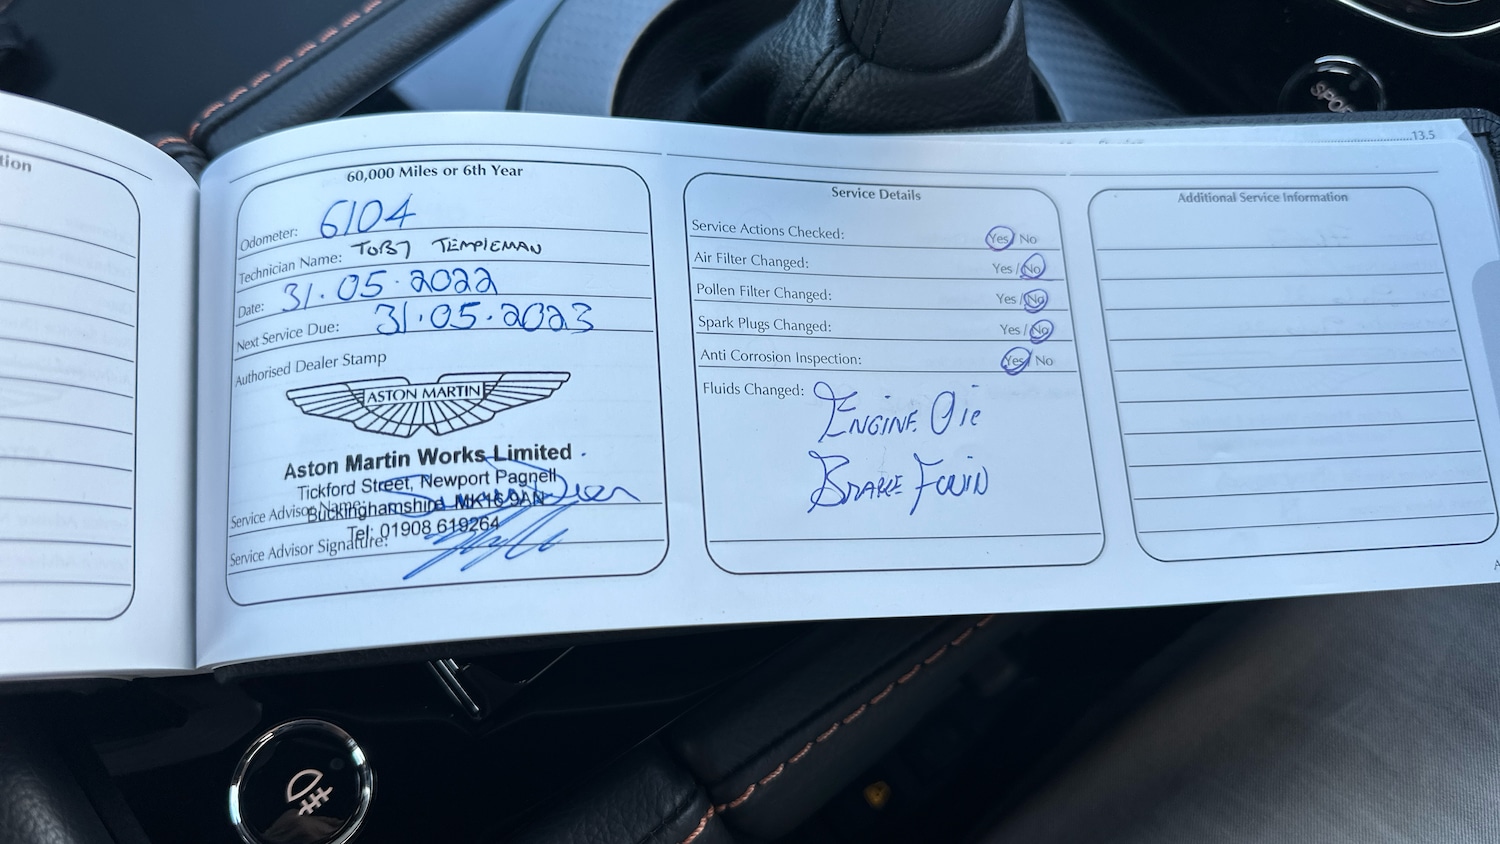 tion
60,000 Miles or 6th Year
Odometer: 6104
Technician Name: TOBY TEMPLEMAN
Date: 31.05.2022
Next Service Due: 31.05.2023
Authorised Dealer Stamp
ASTON MARTIN
Aston Martin Works Limited
Tickford Street, Newport Pagnell
Buckinghamshire MK16 9AN
Service Advisor Name:
Tel: 01908 619264
Service Advisor Signature:
Service Details
Service Actions Checked: Yes / No
Air Filter Changed: Yes / No
Pollen Filter Changed: Yes / No
Spark Plugs Changed: Yes / No
Anti Corrosion Inspection: Yes / No
Fluids Changed: ENGINE OIL
BRAKE FLUID
13.5
Additional Service Information
SPORT